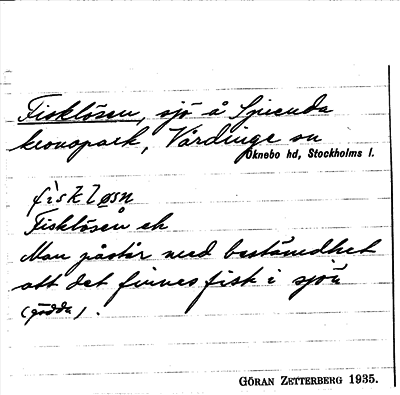 Fisklösen, sjö å Ljusnda
kronopark, Vårdinge sn
Öknebo hd, Stockholms l.
fìskløsn
Fisklösen ek
Man påstår med bestämdhet
att det finnes fisk i sjön
(gädda).
GÖRAN ZETTERBERG 1935.